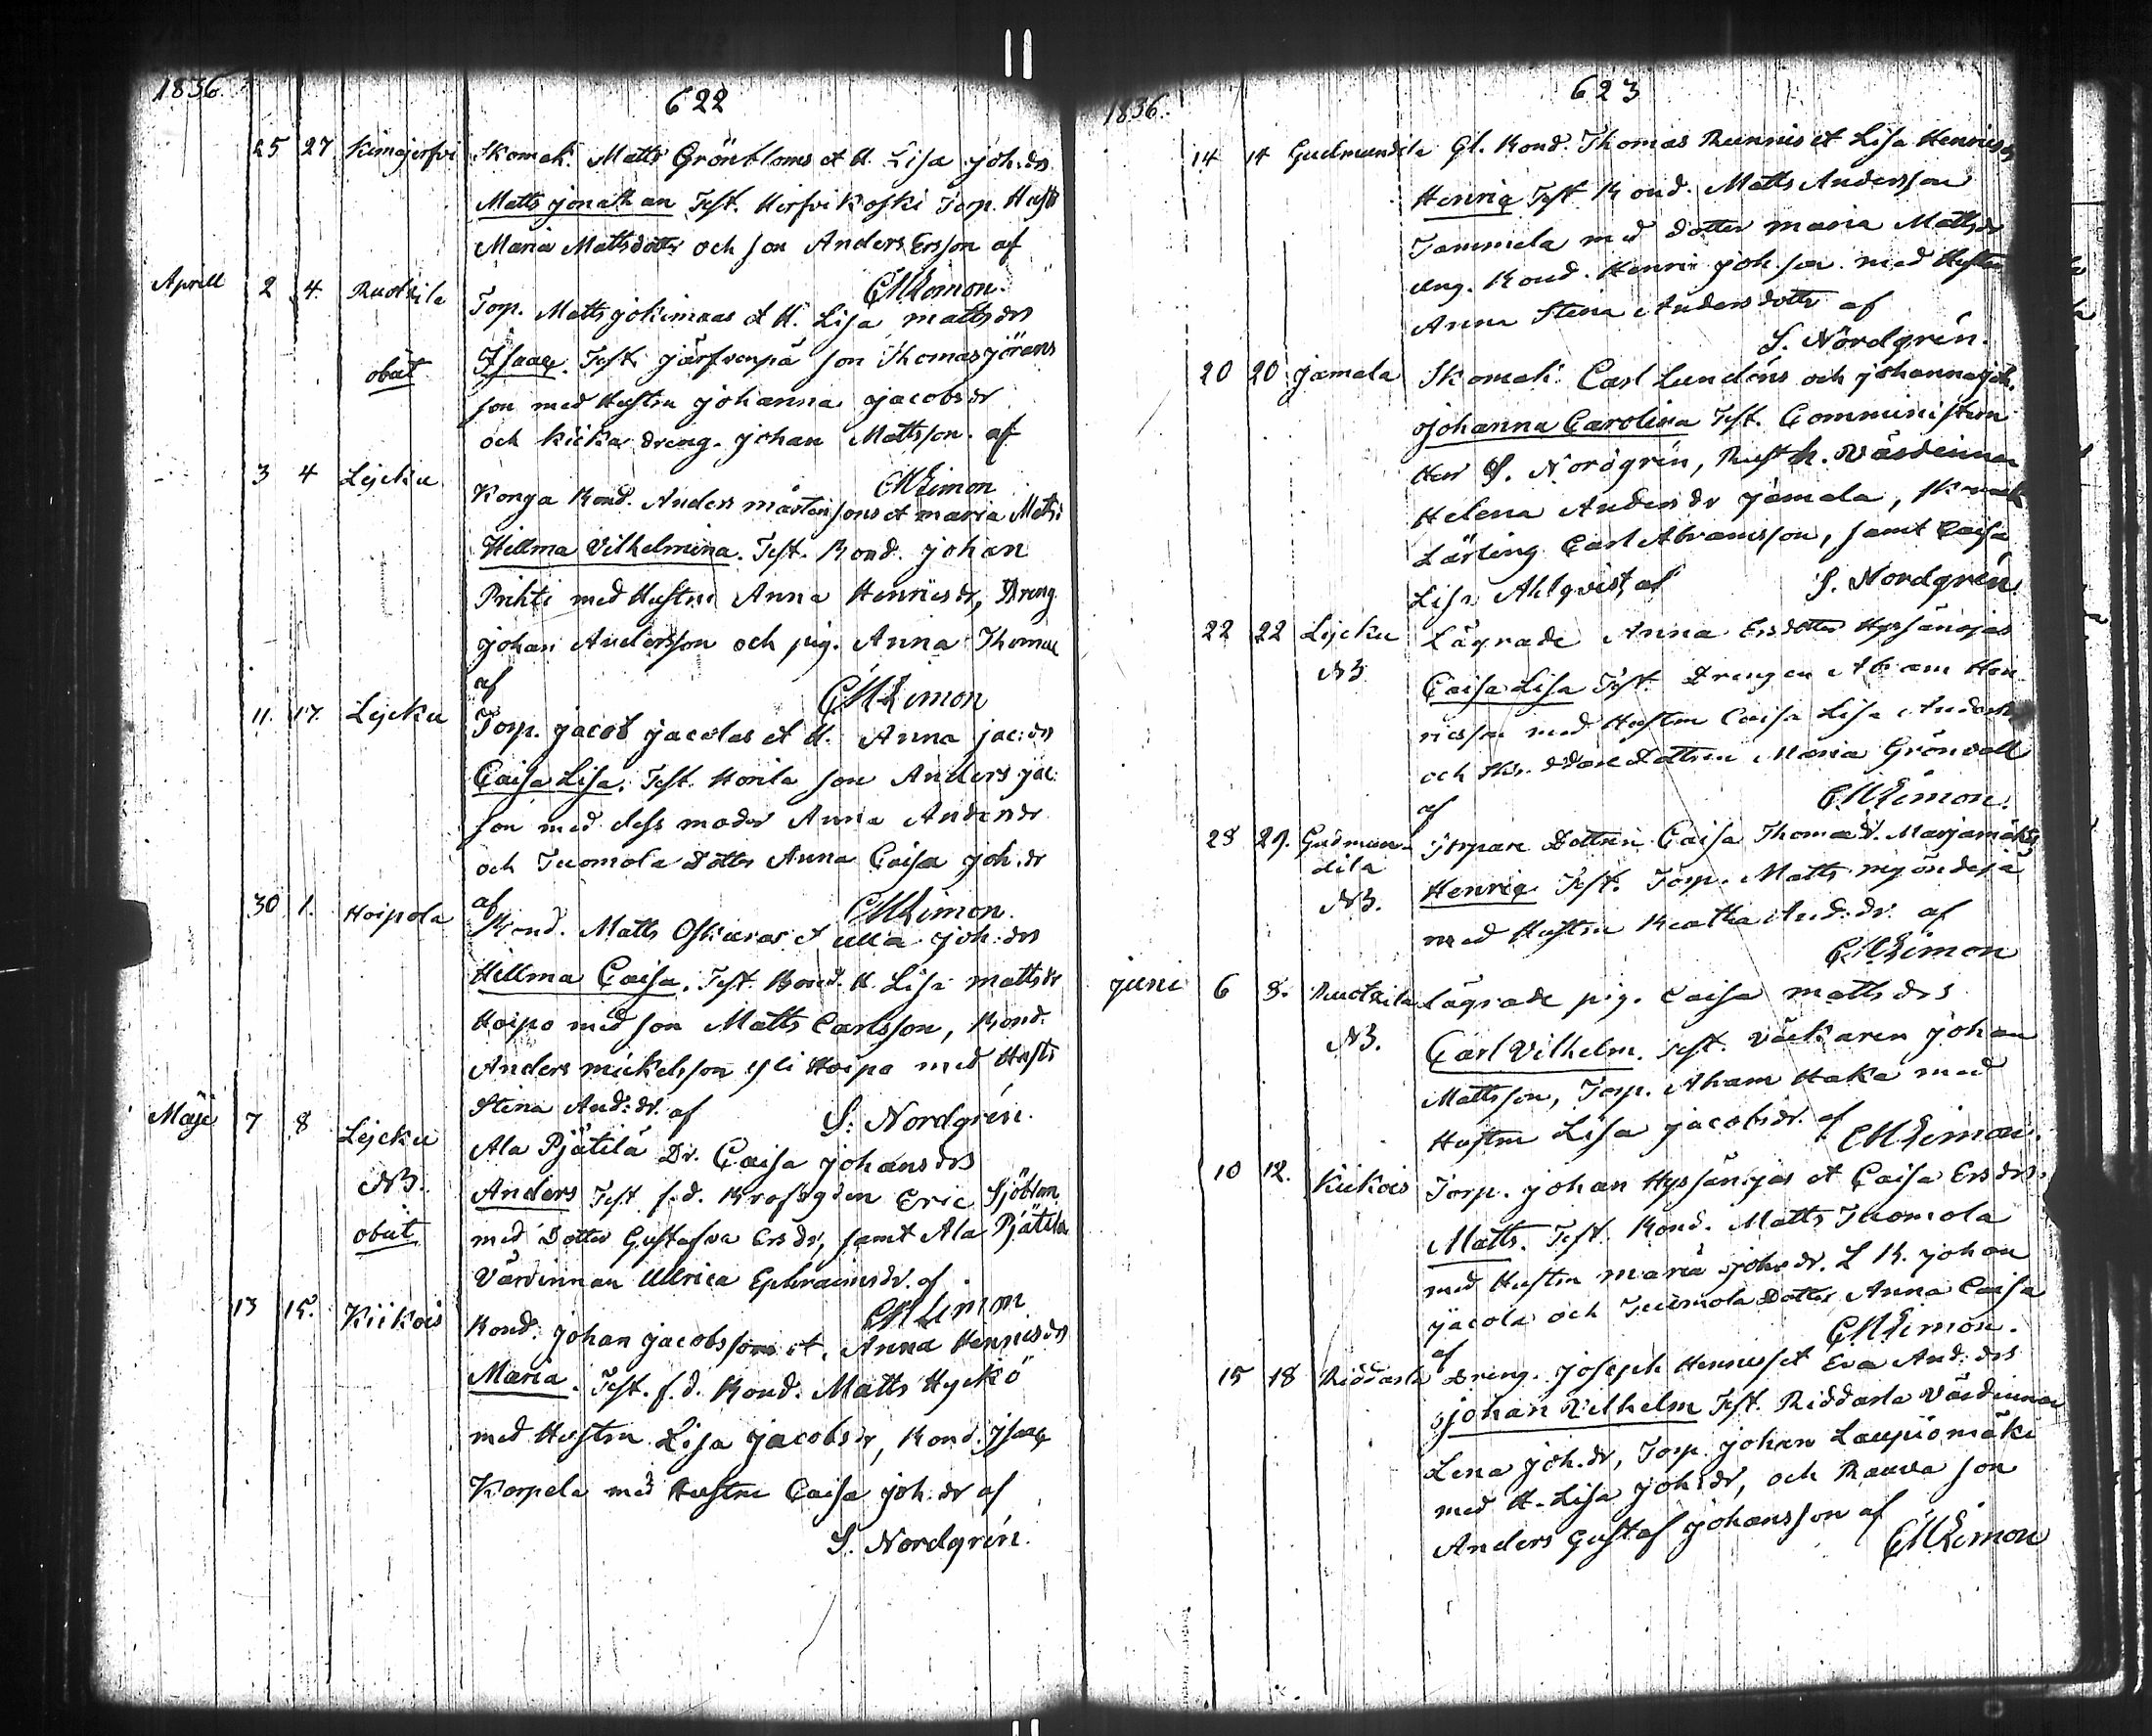 1836.
622
25 27 Kimajerfvi Skomak. Matts Grönbloms et H. Lisa Joh:drs
Matts Jonathan Test. Herfvikoski Torp. Hustr
Maria Mattsdotter och son Anders Ersson af
CMLimon.
Aprill 2 4. Ruotzila Torp. Matts Jokimaas et H. Lisa Mattsdrs
obiit Isaac. Test. Järfvenpä son Thomas Jörans
son med Hustru Johanna Jacobsdr
och Kicka dreng. Johan Mattsson. af
CMLimon
3 4 Lejcku Konga Bond. Anders Mårtenssons et Maria Mats:
Hillma Vilhelmina. Test. Bond. Johan
Prihti med Hustru Anna Henricsdr, Dreng
Johan Andersson och pig. Anna Thomae
af CMLimon
11. 17. Lejcku Torp. Jacob Jacolas et H. Anna Jac:drs
Caisa Lisa. Test. Horila son Anders Jac:
son med dess moder Anna Andersdr
och Tuomola Dotter Anna Caisa Joh:dr
af CMLimon.
30 1. Hoipola Bond. Matts Oskaras et Ulla Joh:drs
Hillma Caisa. Test. Bond. H. Lisa Mattsdr
Hoipo med son Matts Carlsson, Bond.
Anders Mickelsson Yli Hoipo med Hustr
Stina And:dr. af S. Nordgrén.
Maji 7 8 Lejcku Ala Pjätilä Dr. Caisa Johansdrs
NB. Anders Test. f.d. Eric Sjöblom
obiit. med Dotter Gustafva Ersdr, samt Ala Pjätila
Värdinnan Ullrica Ephraimsdr. af
CMLimon
13 15. Kiikois Bond. Johan Jacobssons et. Anna Henricsdrs
Maria. Test. f.d. Bond. Matts Hyckö
med Hustru Lisa Jacobsdr, Bond. Isaac
Korpela med Hustru Caisa Joh:dr af
S. Nordgrén.
1836.
623
14 14 Gudmundila Gl. Bond. Thomas Runnis et Lisa Henricsdrs
Henric Test. Bond. Matts Andersson
Tammela med dotter Maria Mattsdr
ung. Bond. Henric Joh:son med Hustru
Anna Stina Andersdotter af
S. Nordgrén.
20 20 Jamala Skomak. Carl Lundéns och Johanna Joh.
Johanna Carolina Test. Comministern
Herr S. Nordgrén, Rusth. Värdinnan
Helena Andersdr Jamala, Skomak
Lärling Carl Abramsson, samt Caisa
Lisa Ahlqvist af S. Nordgrén.
22 22 Lejcku Lägrade Anna Ersdotter Hyssänojas
NB Caisa Lisa Test. Drengen Abram Hen
ricsson med Hustru Caisa Lisa Andersdr
och Maria Grönvall
af CMLimon.
28 29. Gudmun- Torpare Dottren Caisa Thomædr. Marjamäkis
dila Henric Test. Torp. Matts
NB. med Hustru Beatha And:dr. af
CMLimon
Juni 6 8. Ruotzila Lägrade pig. Caisa Mattsdrs
NB. Carl Vilhelm. Test. Väckaren Johan
Mattsson, Torp. Abram Haka med
Hustru Lisa Jacobsdr. af CMLimon.
10 12. Kiikois Torp. Johan Hyssänojas et Caisa Ersdrs.
Matts. Test. Bond. Matts Tuomola
med Hustru Maria Joh:dr. L B. Johan
Jacola och Tuomola Dotter Anna Caisa
af CMLimon.
15 18 Riddarla Dreng. Joseph Henrics et Eva And:drs
Johan Vilhelm Test. Riddarla Värdinnan
Lena Joh:dr, Torp. Johan Laupiomäki
med H. Lisa Joh:dr, och Rauva son
Anders Gustaf Johansson af
CMLimon